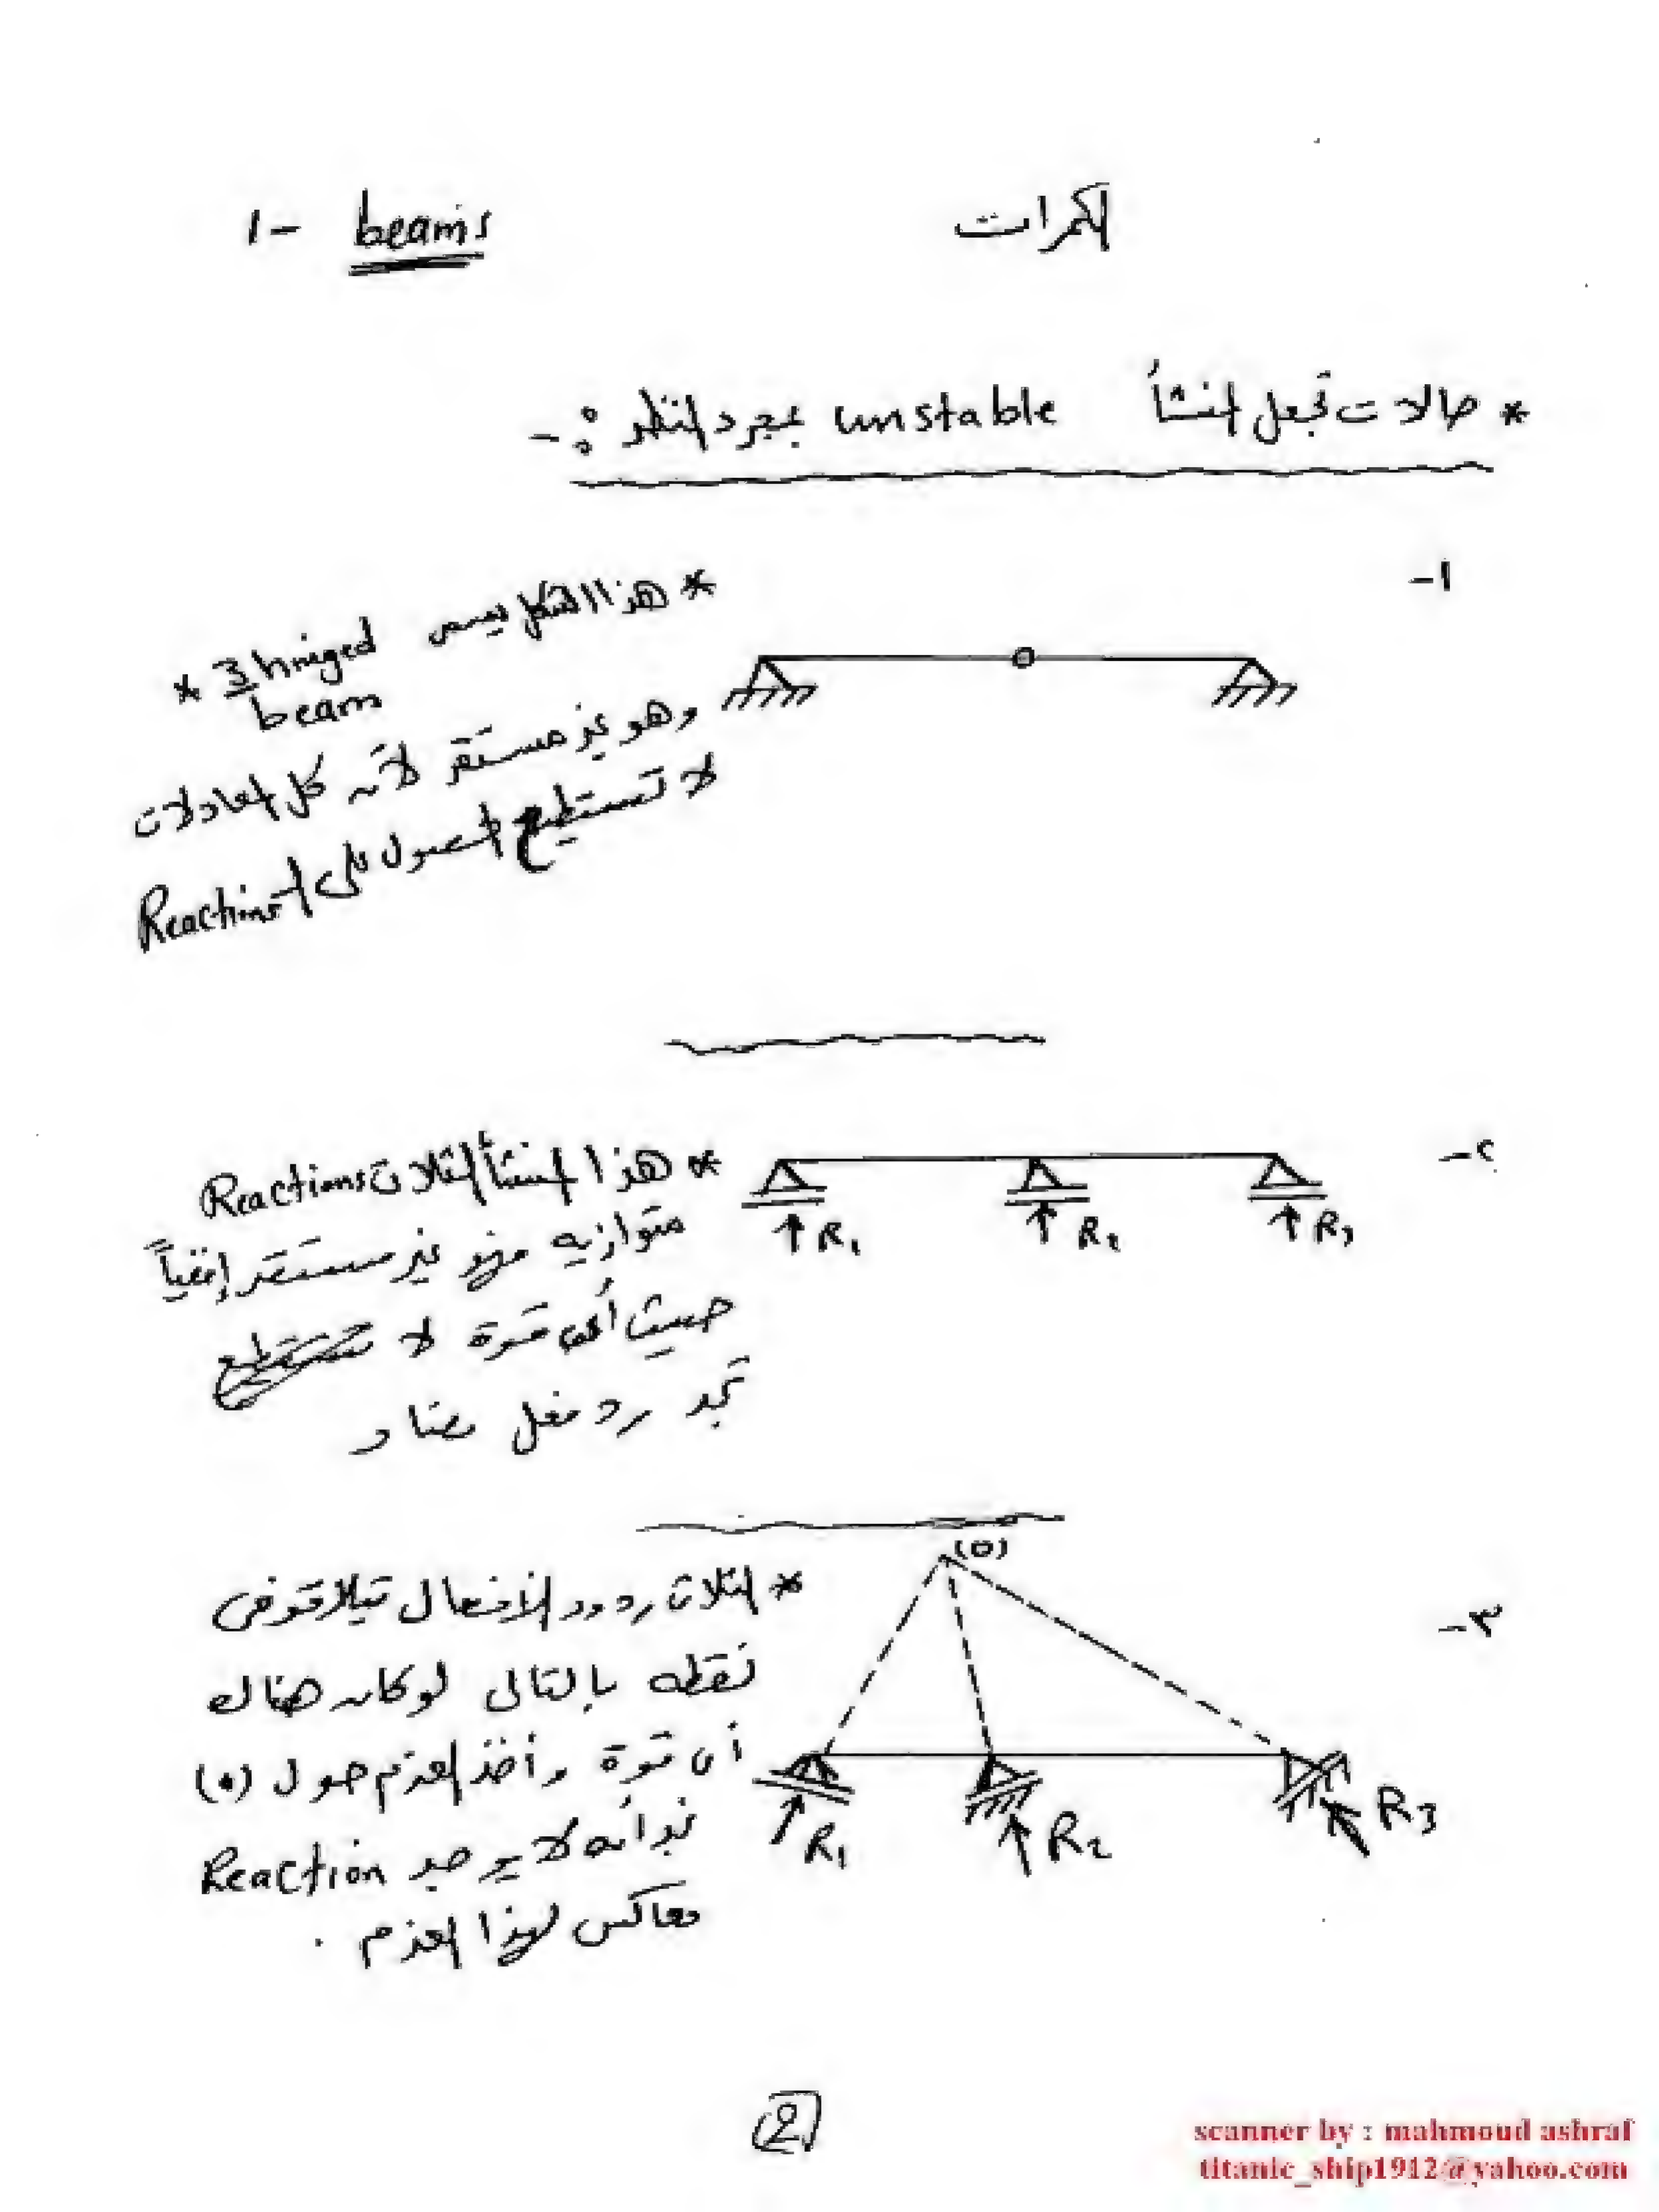 1- beams الكمرات
* حالات تجعل المنشأ unstable بمجرد النظر :-
١-
* هذا الشكل يسمى 3 hinged *
beam
وهو غير مستقر لأنه كل المعادلات
لا تستطيع الحصول على الـ Reactions
٢-
* هذا المنشأ الثلاث Reactions
متوازيه فهو غير مستقر إفقياً
حيث أى قوة لا
تجد رد فعل مضاد
R1 R2 R3
٣-
(0)
* الثلاث ردود الأفعال تتلاقو فى
نقطه بالتالى لو كانه هناك
أى قوة وأخذ العزم حول (0)
نجد أنه لا يوجد Reaction
معاكس لهذا العزم .
R1 R2 R3
2
scanner by : mahmoud ashraf
titanic_ship1912@yahoo.com